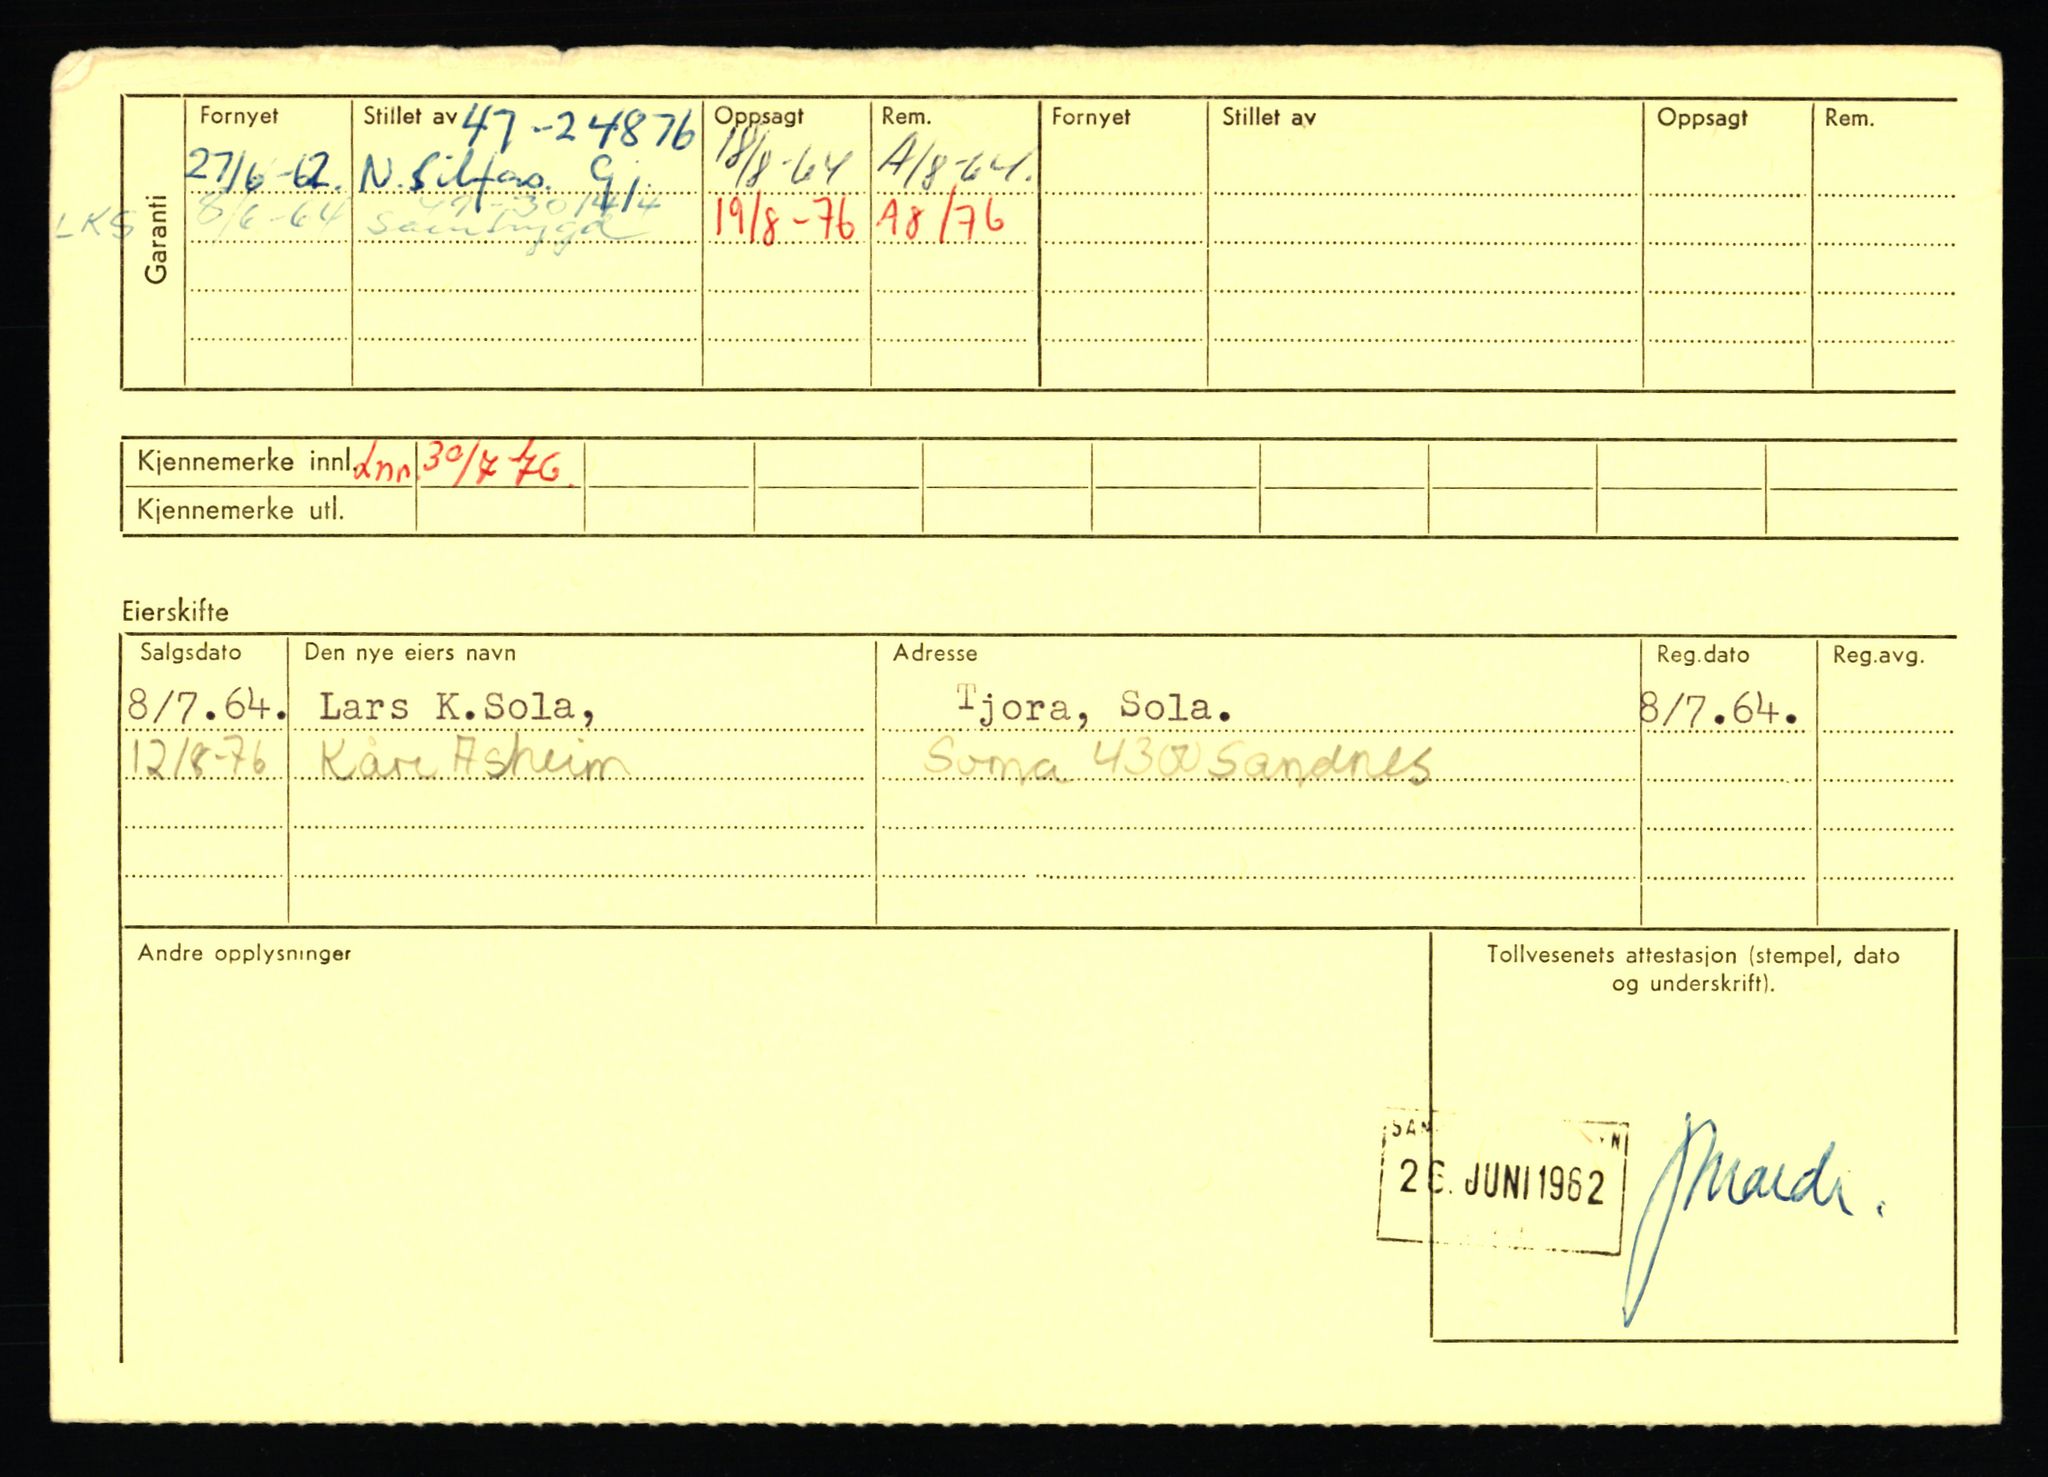 Fornyet Stillet av 47-24876 Oppsagt Rem. Fornyet Stillet av Oppsagt Rem.
27/6-62. N. 18/8-64 A/8-64.
LKS 8/6-64 47-301414 19/8-76 A8/76
Samtrygd
Garanti
Kjennemerke innl. Lnn. 30/7-76.
Kjennemerke utl.
Eierskifte
Salgsdato Den nye eiers navn Adresse Reg.dato Reg.avg.
8/7.64. Lars K.Sola, Tjora, Sola. 8/7.64.
12/8-76 Kåre Asheim Soma 4300 Sandnes
Andre opplysninger
Tollvesenets attestasjon (stempel, dato
og underskrift).
26. JUNI 1962